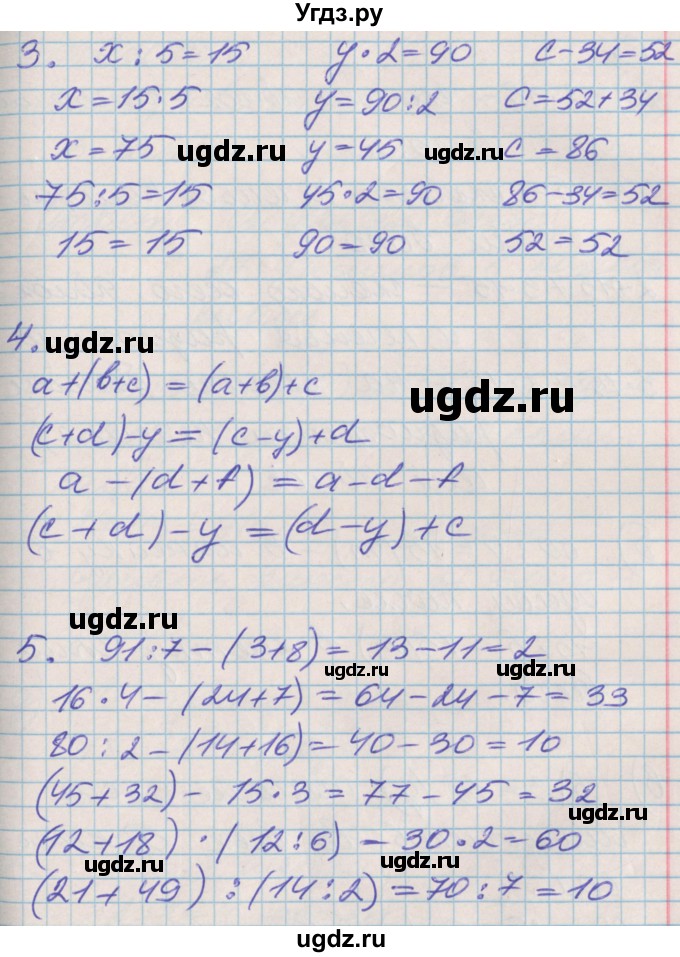 Угдз.ру
3. x : 5 = 15 y · 2 = 90 c - 34 = 52
x = 15 · 5 y = 90 : 2 c = 52 + 34
x = 75 y = 45 c = 86
ugdz.ru ugdz.ru
75 : 5 = 15 45 · 2 = 90 86 - 34 = 52
15 = 15 90 = 90 52 = 52
4.
ugdz.ru
a + (b + c) = (a + b) + c
ugdz.ru
(c + d) - y = (c - y) + d
a - (d + f) = a - d - f
(c + d) - y = (d - y) + c
ugdz.ru
5. 91 : 7 - (3 + 8) = 13 - 11 = 2
ugdz.ru ugdz.ru
16 · 4 - (24 + 7) = 64 - 24 - 7 = 33
80 : 2 - (14 + 16) = 40 - 30 = 10
(45 + 32) - 15 · 3 = 77 - 45 = 32
(12 + 18) · (12 : 6) = 30 · 2 = 60
ugdz.ru ugdz.ru
(21 + 49) : (14 : 2) = 70 : 7 = 10
ugdz.ru